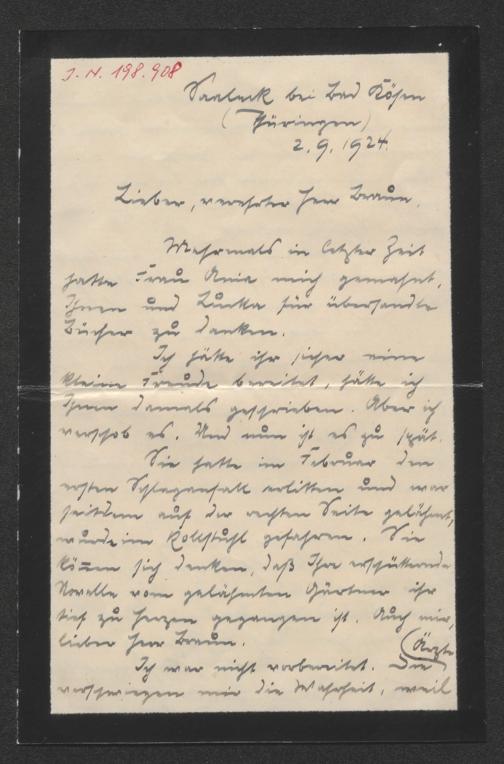 J. N. 198.908
Saaleck bei Bad Kösen
(Thüringen)
2.9.1924.
Lieber, verehrter Herr Braun,
Mehrmals in letzter Zeit
hatte Frau Ania mich gemahnt,
Ihnen und Lucka für übersandte
Bücher zu danken.
Ich hätte ihr sicher eine
kleine Freude bereitet, hätte ich
Ihnen damals geschrieben. Aber ich
verschob es. Und nun ist es zu spät.
Sie hatte im Februar den
ersten Schlaganfall erlitten und war
seitdem auf der rechten Seite gelähmt,
wurde im Rollstuhl gefahren. Sie
können sich denken, daß Ihre erschütternde
Novelle vom gelähmten Gärtner ihr
tief zu Herzen gegangen ist. Auch mir,
lieber Herr Braun.
Ich war nicht vorbereitet. Die Ärzte
verschwiegen mir die Wahrheit, weil